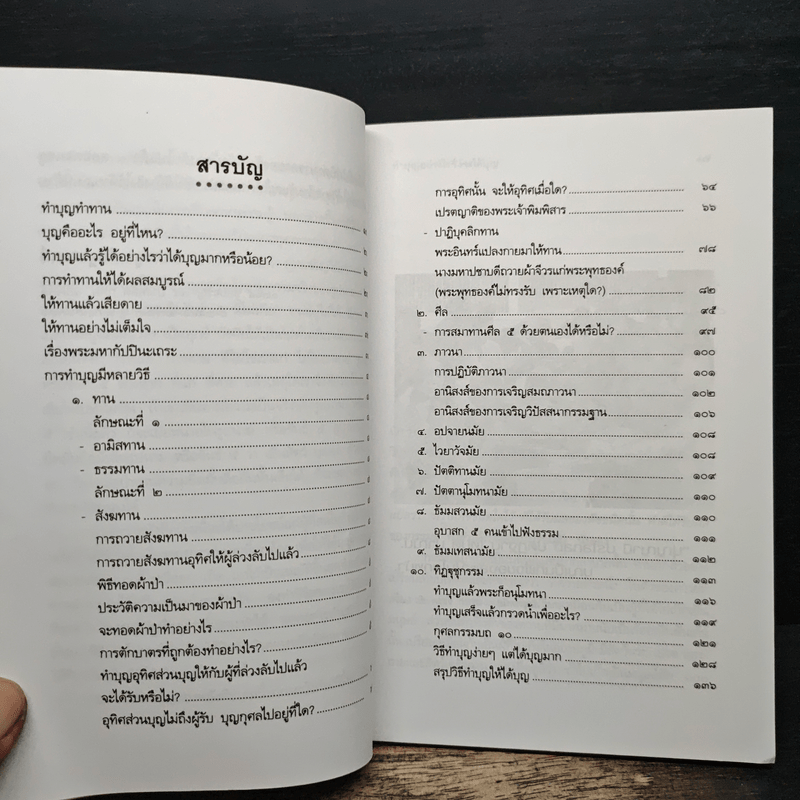 สารบัญ
ทำบุญทำทาน
บุญคืออะไร อยู่ที่ไหน?
ทำบุญแล้วรู้ได้อย่างไรว่าได้บุญมากหรือน้อย?
การทำทานให้ได้ผลสมบูรณ์
ให้ทานแล้วเสียดาย
ให้ทานอย่างไม่เต็มใจ
เรื่องพระมหากัปปินะเถระ
การทำบุญมีหลายวิธี
๑. ทาน
ลักษณะที่ ๑
- อามิสทาน
- ธรรมทาน
ลักษณะที่ ๒
- สังฆทาน
การถวายสังฆทาน
การถวายสังฆทานอุทิศให้ผู้ล่วงลับไปแล้ว
พิธีทอดผ้าป่า
ประวัติความเป็นมาของผ้าป่า
จะทอดผ้าป่าทำอย่างไร
การตักบาตรที่ถูกต้องทำอย่างไร?
ทำบุญอุทิศส่วนบุญให้กับผู้ที่ล่วงลับไปแล้ว
จะได้รับหรือไม่?
อุทิศส่วนบุญไม่ถึงผู้รับ บุญกุศลไปอยู่ที่ใด?
การอุทิศนั้น จะให้อุทิศเมื่อใด? ๖๔
เปรตญาติของพระเจ้าพิมพิสาร ๖๖
- ปาฏิบุคลิกทาน
พระอินทร์แปลงกายมาให้ทาน ๗๘
นางมหาปชาบดีถวายผ้าจีวรแก่พระพุทธองค์
(พระพุทธองค์ไม่ทรงรับ เพราะเหตุใด?) ๘๒
๒. ศีล ๙๕
- การสมาทานศีล ๕ ด้วยตนเองได้หรือไม่? ๙๗
๓. ภาวนา ๑๐๐
การปฏิบัติภาวนา ๑๐๑
อานิสงส์ของการเจริญสมถภาวนา ๑๐๒
อานิสงส์ของการเจริญวิปัสสนากรรมฐาน ๑๐๖
๔. อปจายนมัย ๑๐๘
๕. ไวยาวัจมัย ๑๐๘
๖. ปัตติทานมัย ๑๐๙
๗. ปัตตานุโมทนามัย ๑๑๐
๘. ธัมมสวนมัย ๑๑๐
อุบาสก ๕ คนเข้าไปฟังธรรม ๑๑๑
๙. ธัมมเทสนามัย ๑๑๒
๑๐. ทิฏฐุชุกรรม ๑๑๓
ทำบุญแล้วพระก็อนุโมทนา ๑๑๖
ทำบุญเสร็จแล้วกรวดน้ำเพื่ออะไร? ๑๑๙
กุศลกรรมบถ ๑๐ ๑๒๑
วิธีทำบุญง่ายๆ แต่ได้บุญมาก ๑๒๘
สรุปวิธีทำบุญให้ได้บุญ ๑๓๖